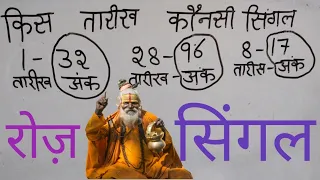 किस तारीख कौनसी सिंगल
1-32 28-96 8-17
तारीख अंक तारीख-अंक तारीस-अंक
रोज़ सिंगल